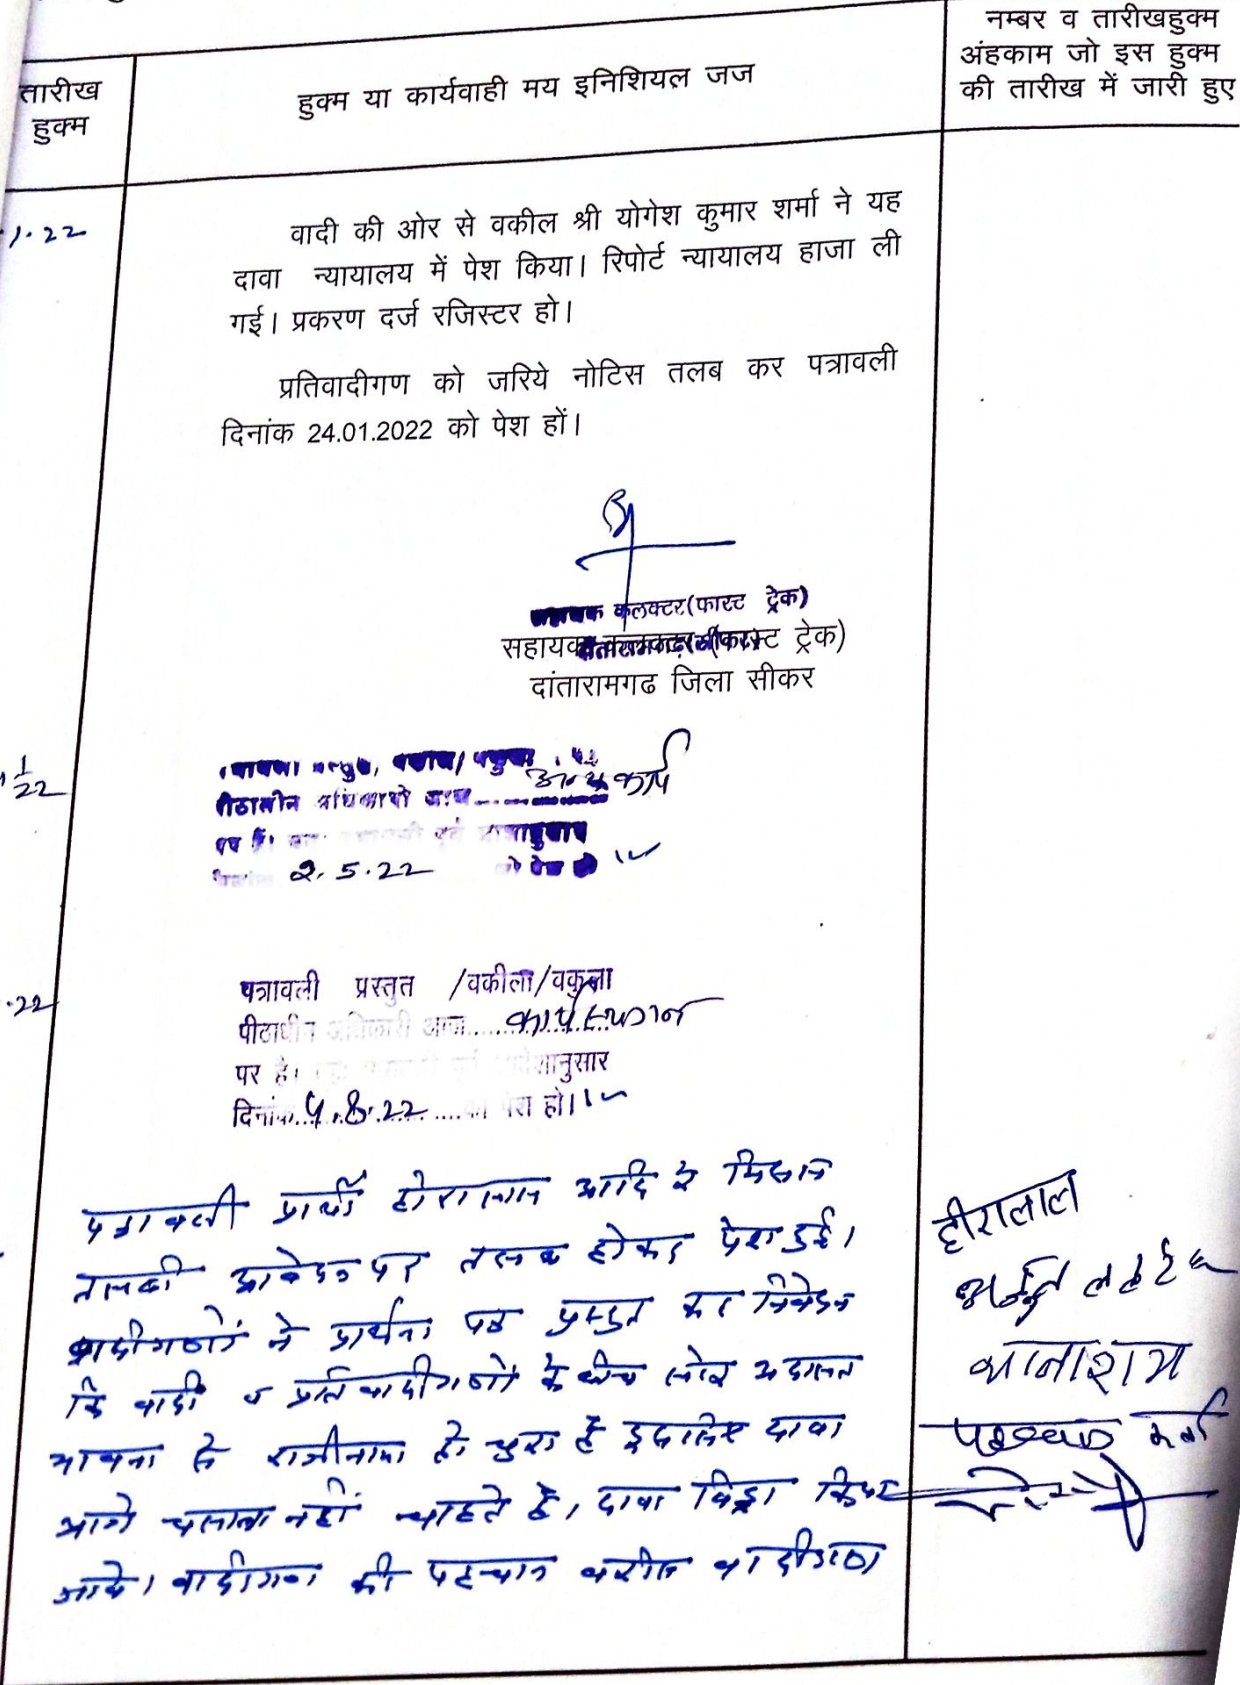 तारीख
हुक्म
हुक्म या कार्यवाही मय इनिशियल जज
नम्बर व तारीखहुक्म
अंहकाम जो इस हुक्म
की तारीख में जारी हुए
1.22
वादी की ओर से वकील श्री योगेश कुमार शर्मा ने यह
दावा न्यायालय में पेश किया। रिपोर्ट न्यायालय हाजा ली
गई। प्रकरण दर्ज रजिस्टर हो।
प्रतिवादीगण को जरिये नोटिस तलब कर पत्रावली
दिनांक 24.01.2022 को पेश हों।
कलक्टर(फास्ट ट्रेक)
सहायक कलक्टर (फास्ट ट्रेक)
दांतारामगढ जिला सीकर
1/22
अन्य कार्य
पीठासीन अधिकारी आज
2.5.22 को पेश हो
.22
पत्रावली प्रस्तुत /वकीला/वकुला
पीठाधीन अधिकारी आज कार्यस्थान
पर है। आदेशानुसार
दिनांक 4.8.22 को पेश हो।
पत्रावली प्रार्थी हीरालाल आदि के
तलबी आवेदन पर तलब होकर पेश हुई।
वादीगणों ने प्रार्थना पत्र प्रस्तुत कर निवेदन
कि वादी व प्रतिवादीगणों के बीच लोक अदालत
भावना से राजीनामा हो चुका है इसलिए दावा
आगे चलाना नहीं चाहते है, दावा विड्रा किया
जावे। वादीगण की पहचान वकील वादीगण
हीरालाल
अर्जुन
पहचान कर्ता